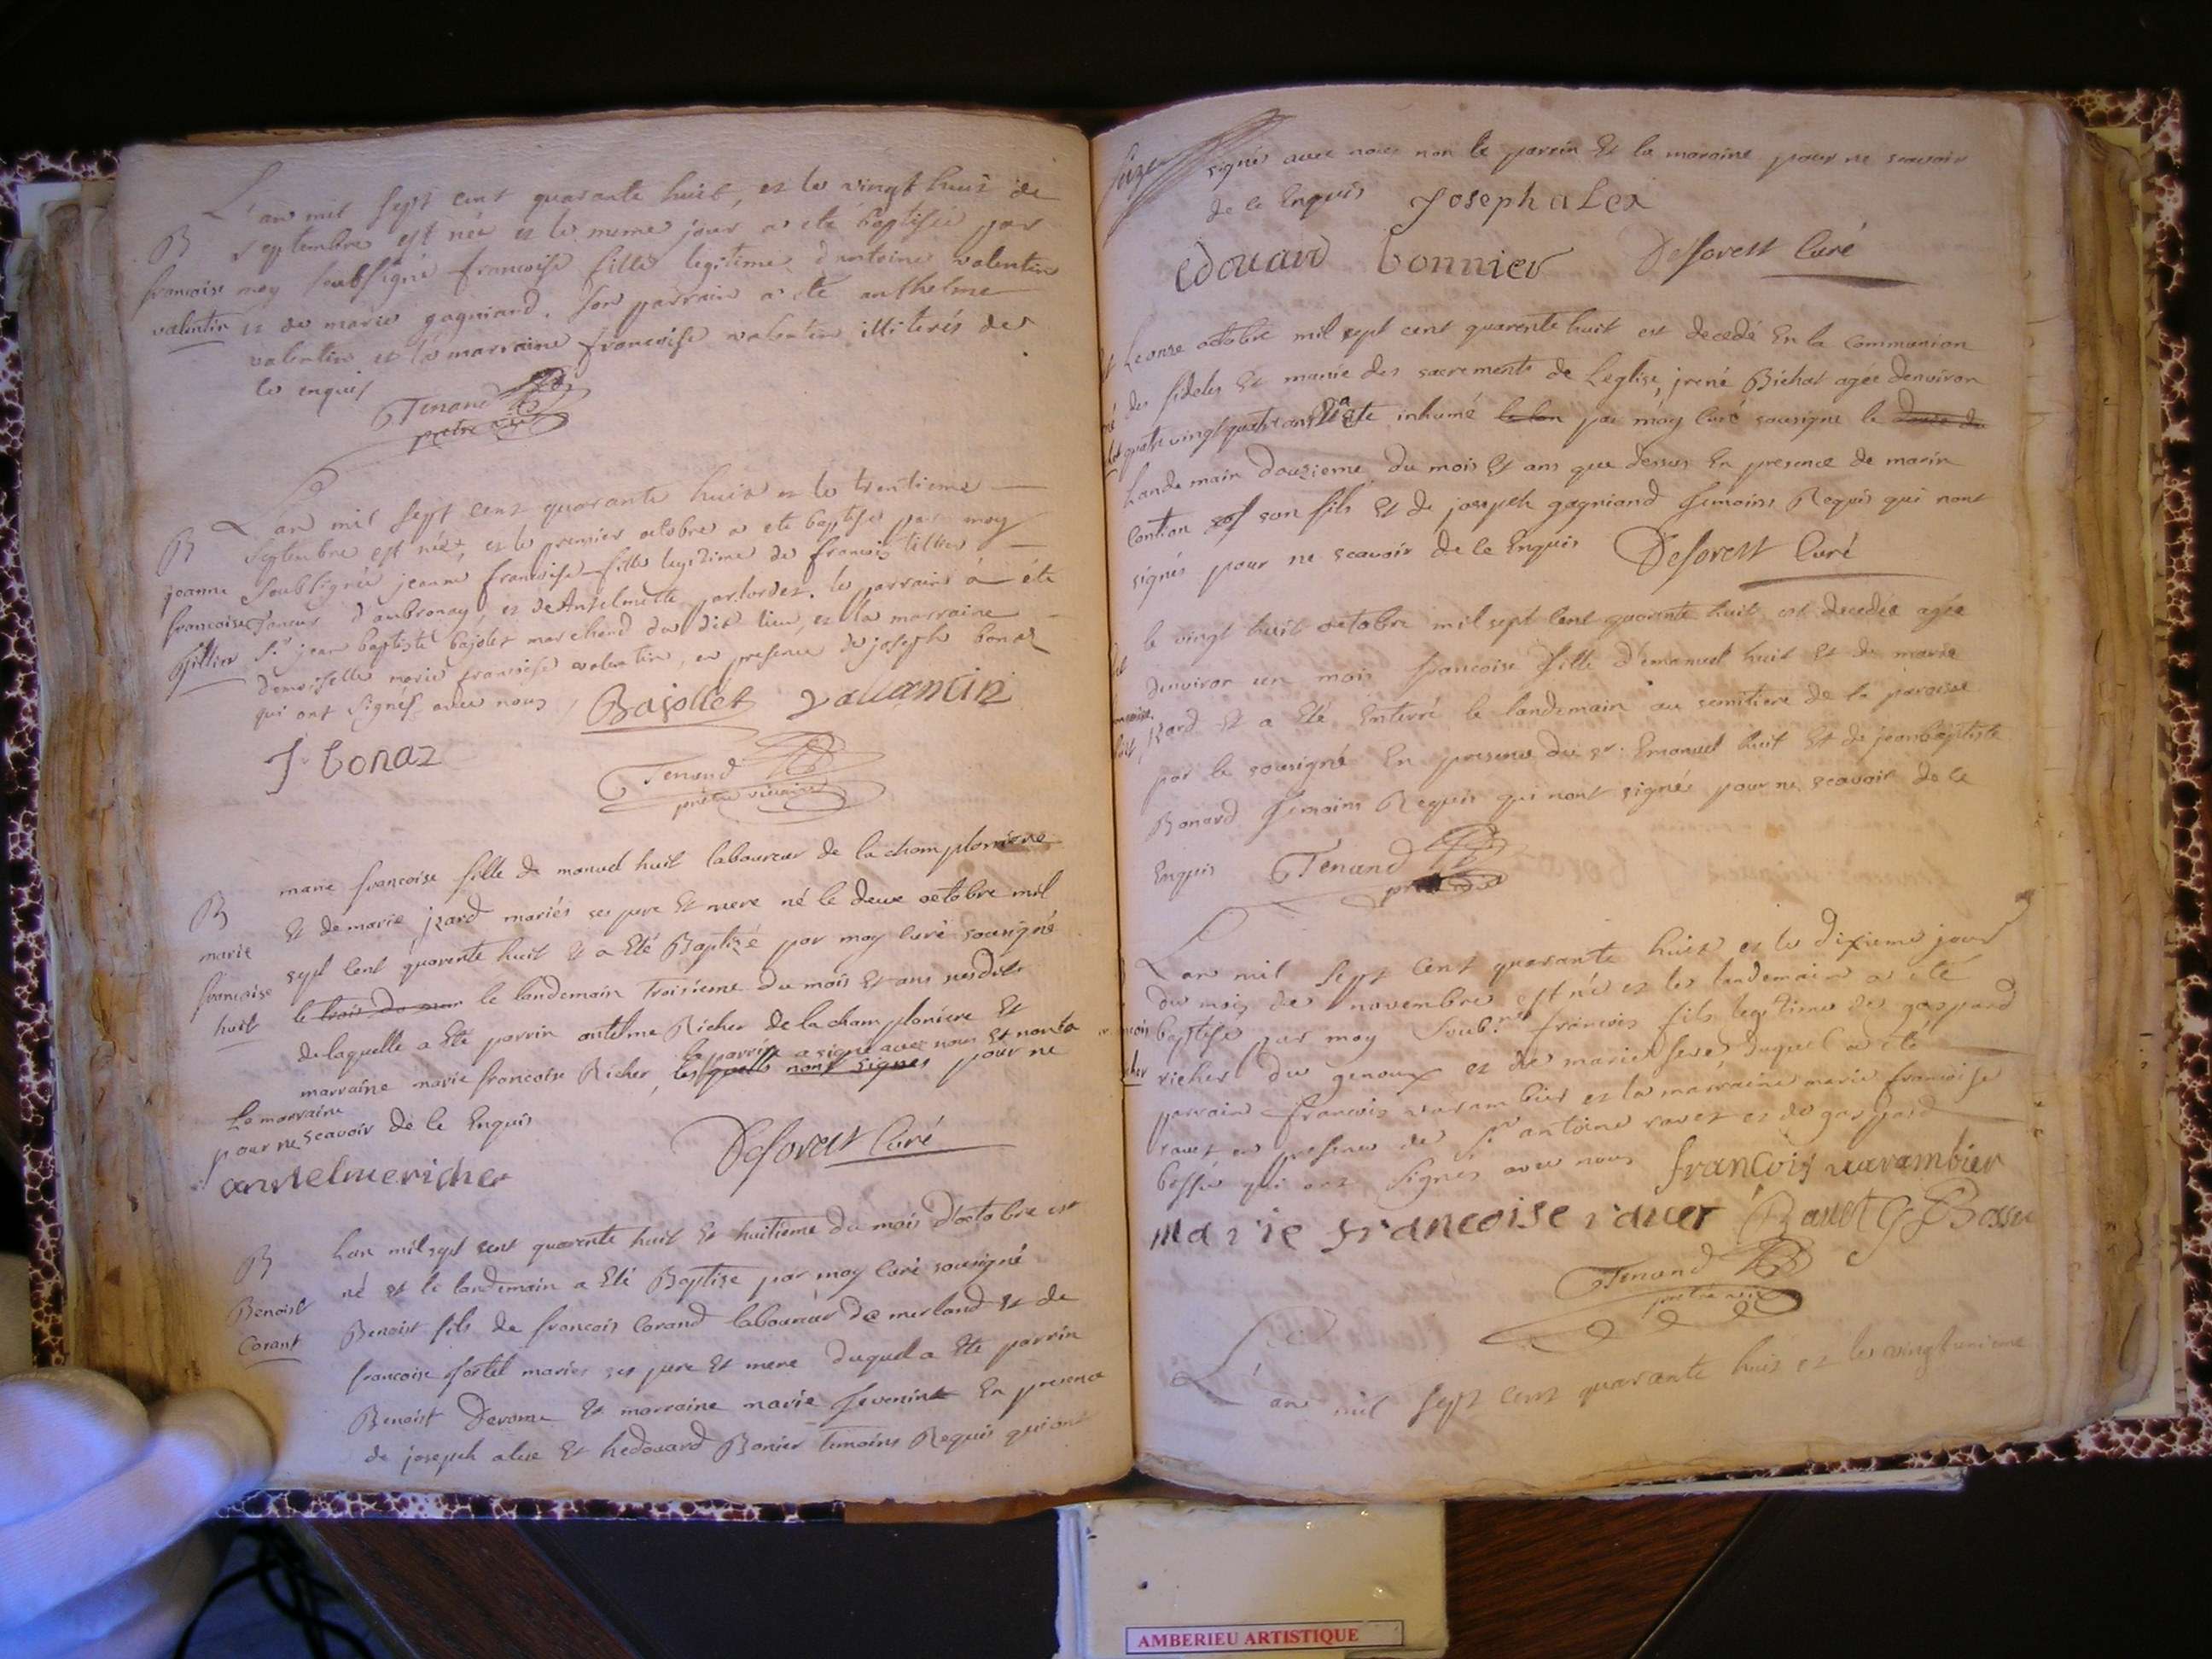 L'an mil sept cent quarante huit, et le vingt huit de
B septembre est née et le meme jour a eté baptisée par
francoise moy soubsigné francoise fille legitime d'antoine valentin
valentin et de marie gagniand. Son parrain a eté anthelme
valentin et la marraine francoise valentin illiterés de
ce enquis
Tenand
pretre vic
L'an mil sept cent quarante huit et le trentieme
B septembre est née, et le premier octobre a eté baptisée par moy
jeanne soubsignée jeanne francoise fille legitime de francois
francoise d'ambronay, et de Antelmette le parrain a été
Sr jean baptiste bajolet marchand du dit lieu, et la marraine
demoiselle marie francoise valentin, en presence de joseph bonaz
qui ont signés avec nous
Bajollet Vallantin
J. bonaz
Tenand
pretre vicaire
marie francoise fille de manuel huit laboureur de la champloniere
B Et de marie jzard mariés ses pere Et mere né le deux octobre mil
marie sept cent quarente huit Et a Eté Baptizé par moy curé sousigné
francoise le trois du mon le landemain troisieme du mois Et ans susdits
huit de laquelle a Eté parrin antelme Richer de la champloniere Et
le parrin a signé avec nous Et non la
marraine marie francoise Richer, lesquels nont signes pour ne
La marraine
pour ne scavoir de ce Enquis
antelmericher
Deforest Curé
B Lan mil sept cent quarente huit Et huitieme du mois d'octobre est
né et le landemain a Eté Baptize par moy Curé sousigné
Benoist Benoist fils de francois Corand laboureur de merland Et de
Corant francoise fortel mariés ses pere Et mere duquel a Eté parrin
Benoist Derome Et marraine marie En presence
de joseph alex Et hedouard Bonier temoins Requis qui ont
seize signés avec nous non le parrin Et la maraine pour ne scavoir
de ce Enquis Joseph aLex
Edouard bonnier Deforest Curé
Le onze octobre mil sept cent quarente huit est decedé En la Communion
des fideles Et munie des sacrements de Leglise, jrené Bichat agée denviron
quatre vingt quatre ans Et a eté inhumé par moy Curé sousigne le
Landemain douzieme du mois Et ans que dessus En presence de marin
Contion son fils Et de joseph gagniand temoins Requis qui nont
signés pour ne scavoir de ce Enquis Deforest Curé
le vingt huit octobre mil sept cent quarente huit est decedée agée
denviron un mois francoise fille d'emanuel huit Et de marie
jzard Et a Eté Enterré le landemain au semitiere de la paroisse
par le sousigné En presence du sr. Emanuel huit Et de jeanbaptiste
Bonard temoins Requis qui nont signés pour ne scavoir de ce
Enquis Tenand
L'an mil sept cent quarante huit et le dixieme jour
du mois de novembre est né et le landemain a eté
baptisé par moy soub.né francois fils legitime de gaspard
richer du genoux et de marie seve duquel a eté
parrain francois varambier et la marraine marie francoise
ravet en presence de Sr antoine ravet et de gaspard
bossu qui ont signés avec nous francois varambier
marie francoise raver Ravet G Bossu
Tenand
pretre vic
L'an mil sept cent quarante huit et le vingtunieme
AMBERIEU ARTISTIQUE